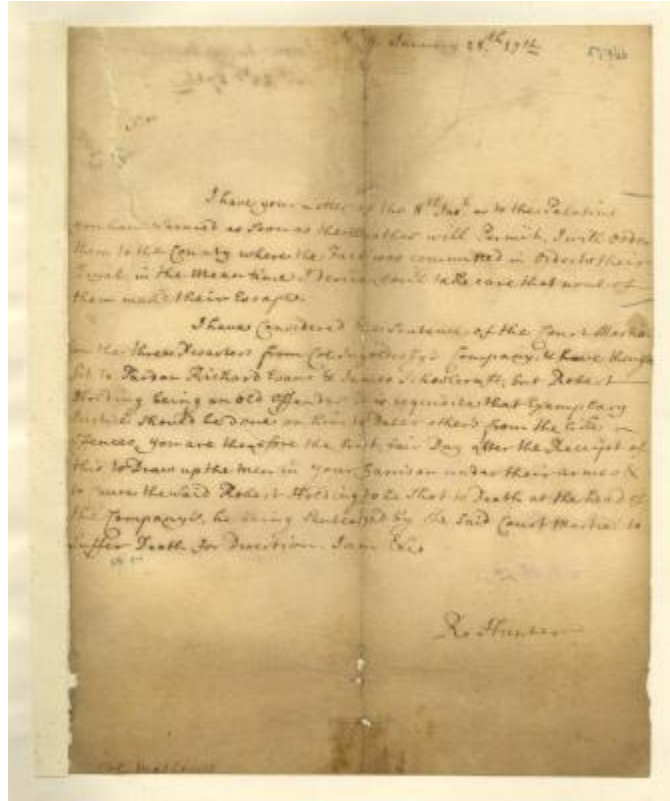 January 28.th 171
Sir
I have your Letter of the 8th Inst. as to the Palatins
you have Secured as Soon as the Weather will Permitt, I will Order
them to the County where the Fact was committed in Order to their
Tryal, in the Mean time I desire you'l take care that none of
them make their Escape.
I have Considered the Sentence of the Court Martial
on the three Deserters from Col. Ingoldesby's Company, & have thought
fit to Pardon Richard Evans & James Schoolcraft, but Robert
Holding being an Old Offender it is requisite that Exemplary
Justice Should be done on him to Deter others from the like
Offences, you are therefore the first fair Day after the Receipt of
this to Draw up the Men in your Garrison under their Armes &
to cause the Said Robert Holding to be Shot to Death at the head of
the Company's, he being Sentenced by the Said Court Martial to
Suffer Death for Desertion. I am &c.
Ro Hunter
Col. Mathews